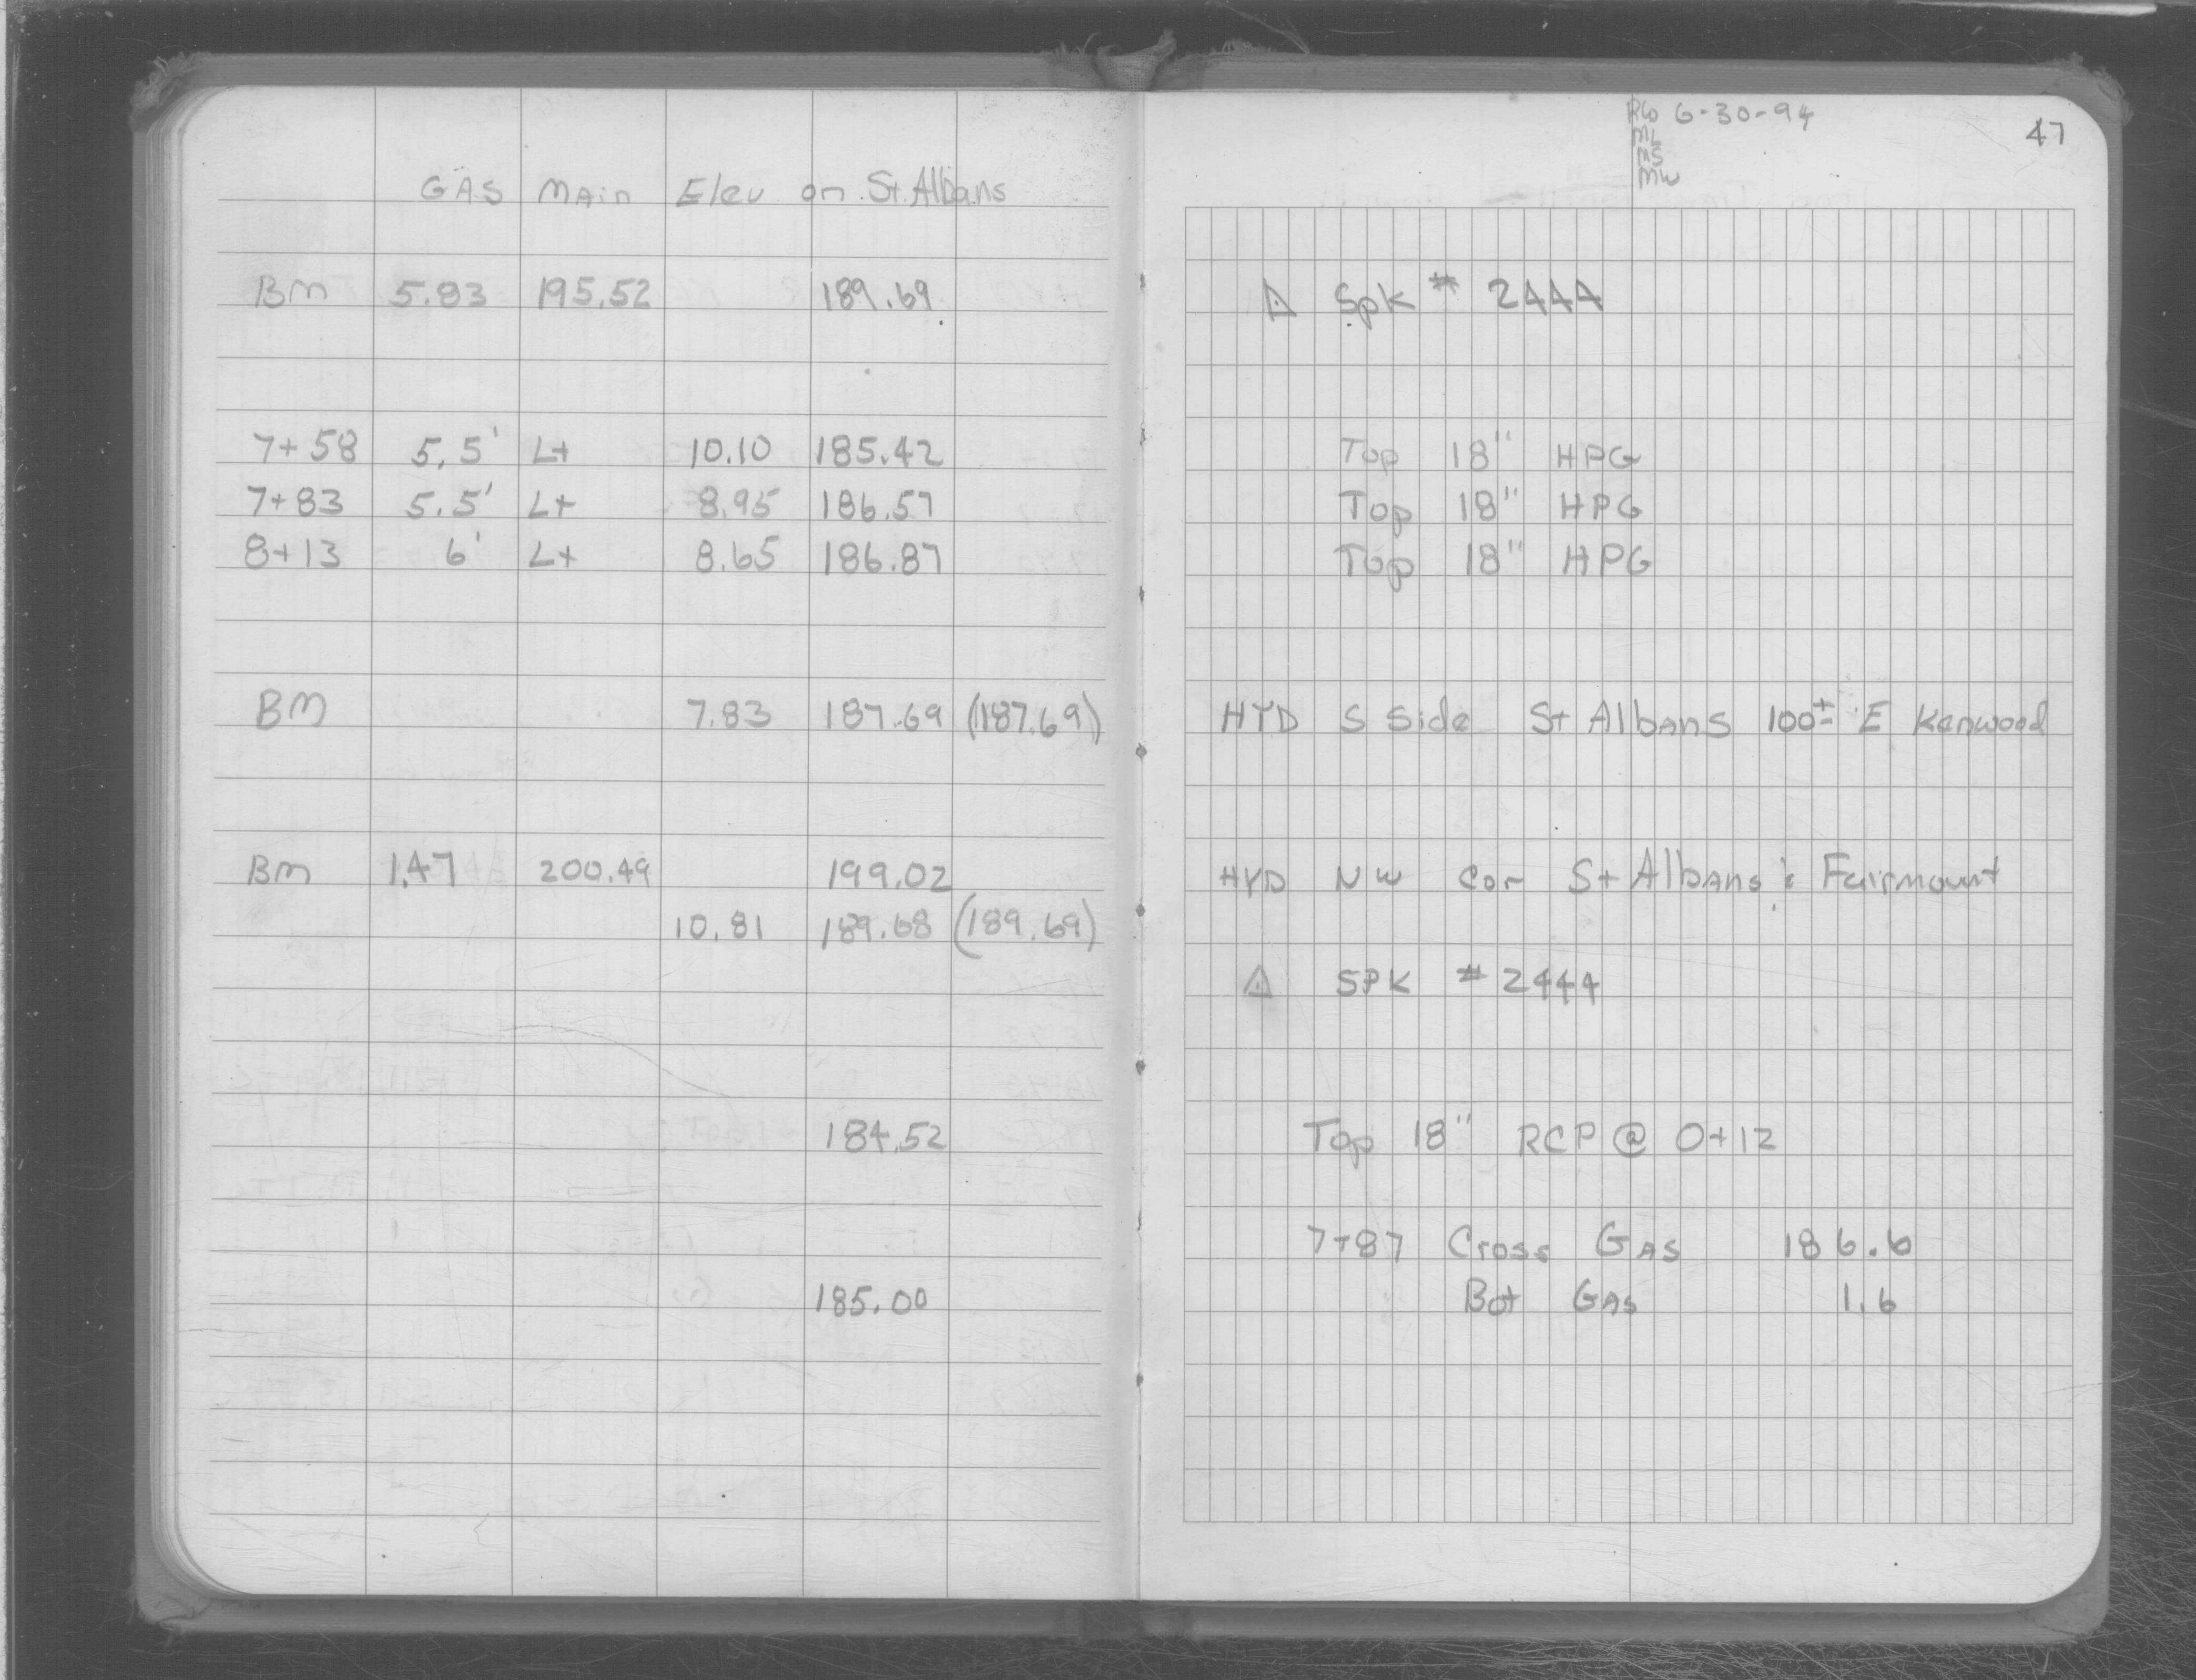 GAS Main Elev on St. Albans
BM 5.83 195.52 189.69
7+58 5.5' Lt 10.10 185.42
7+83 5.5' Lt 8.95 186.57
8+13 6' Lt 8.65 186.87
BM 7.83 187.69 (187.69)
BM 1.47 200.49 199.02
10.81 189.68 (189.69)
184.52
185.00
6-30-94
ML
MS
MW
47
Spk # 2444
Top 18" HPG
Top 18" HPG
Top 18" HPG
HYD S Side St Albans 100± E Kenwood
HYD NW Cor St Albans & Fairmount
SPK # 2444
Top 18" RCP @ 0+12
7+87 Cross GAS 186.6
Bot GAS 1.6